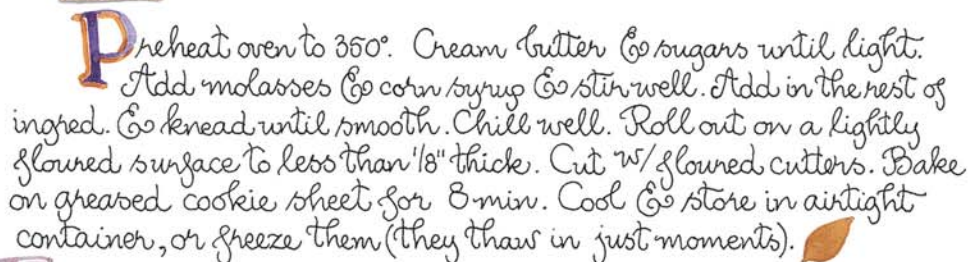 Preheat oven to 350°. Cream butter & sugars until light.
Add molasses & corn syrup & stir well. Add in the rest of
ingred. & knead until smooth. Chill well. Roll out on a lightly
floured surface to less than 1/8" thick. Cut w/ floured cutters. Bake
on greased cookie sheet for 8 min. Cool & store in airtight
container, or freeze them (they thaw in just moments).